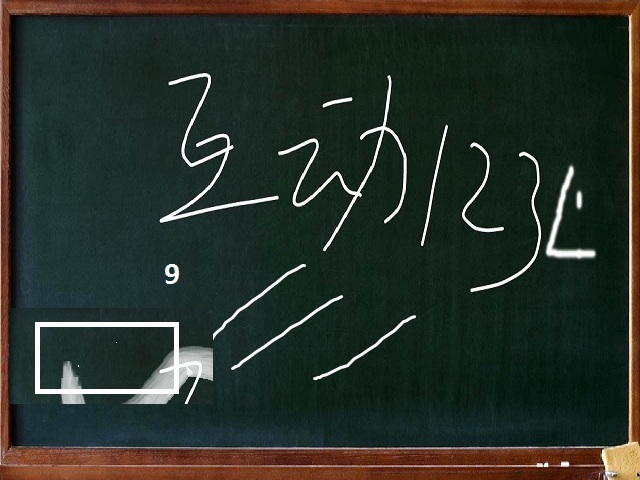 互动123
9